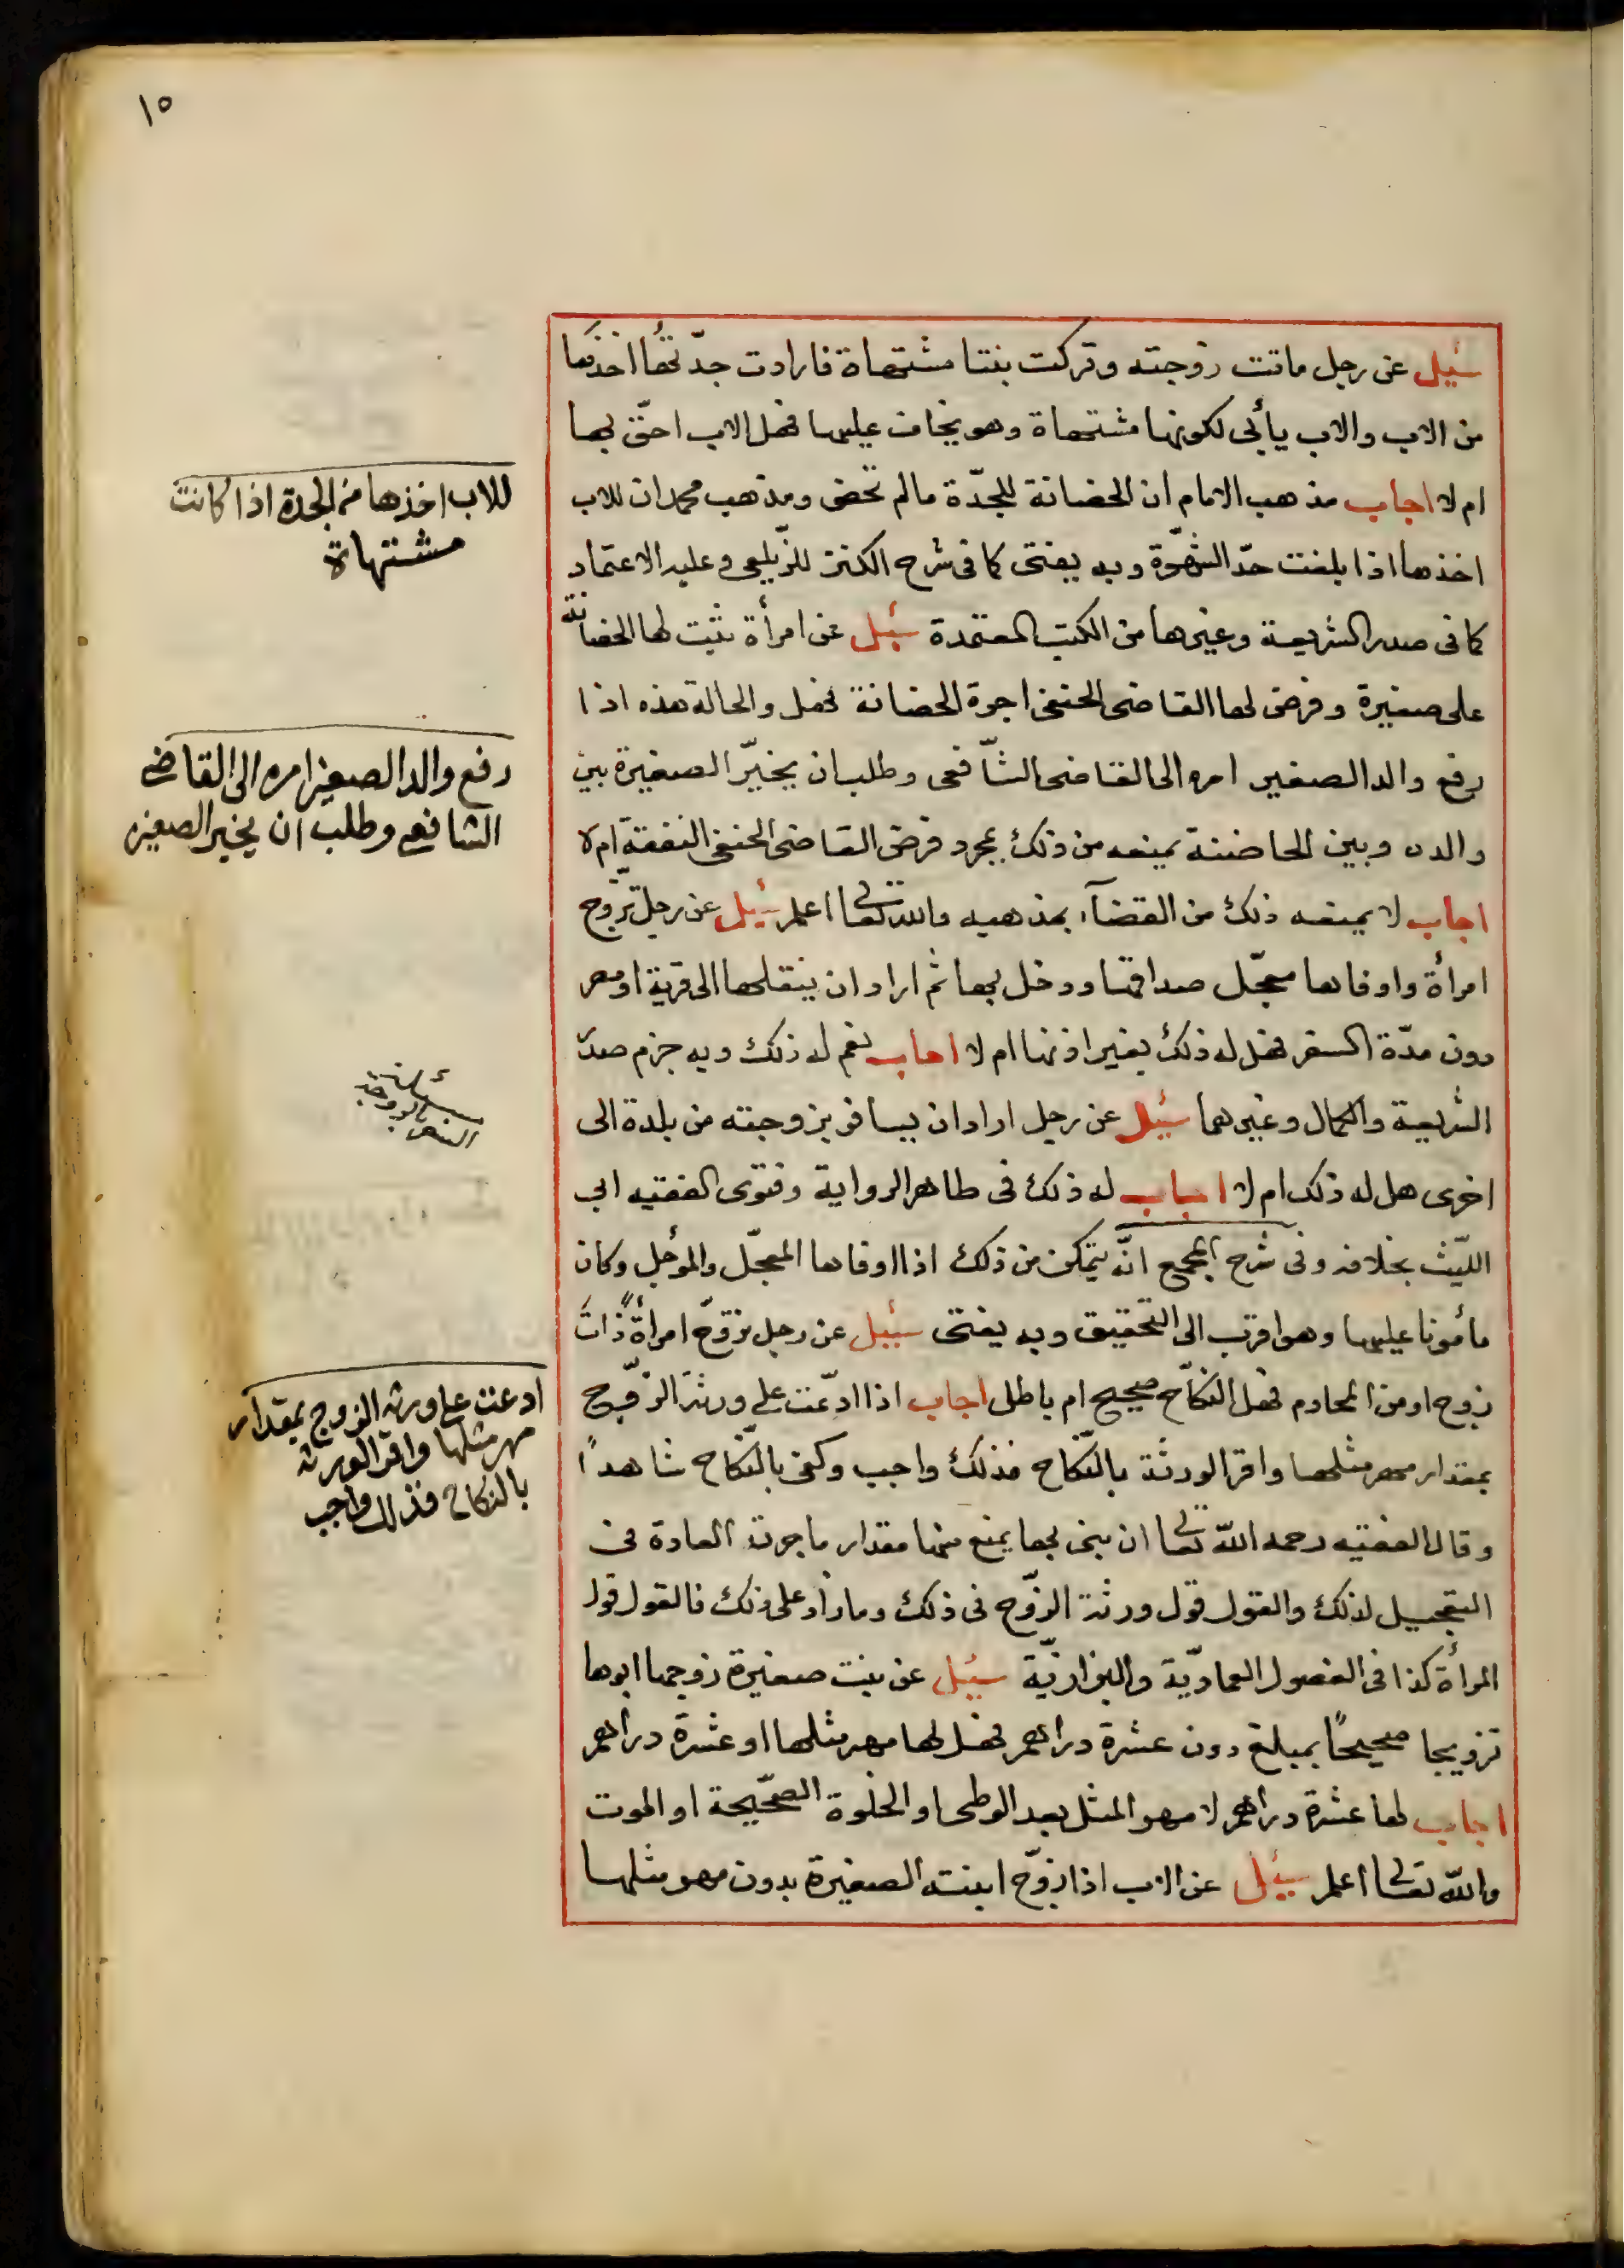 ١٥
سئيل عن رجل ماتت زوجته وتركت بنتا مشتهاة فارادت جدّتها اخذها
من الاب والاب يأبى لكونها مشتهاة وهو يخاف عليها فهل الاب احقّ بها
ام لا اجاب مذهب الامام ان الحضانة للجدّة مالم تحض ومذهب محمد ان للاب
اخذها اذا بلغت حدّ الشهوّة وبه يفتى كما فى شرح الكنز للزّيلعى وعليه الاعتماد
كما فى صدر الشريعة وغيرها من الكتب المعتمدة سئيل عن امرأة ثبت لها الحضانة
على صغيرة وفرض لها القاضى الحنفى اجرة الحضانة فهل والحالة هذه اذا
رفع والد الصغير امره الى القاضى الشّافعى وطلب ان يخيّر الصغيرة بين
والده وبين الحاضنة يمنعه من ذلك بمجرد فرض القاضى الحنفى النفقة ام لا
اجاب لا يمنعه ذلك من القضآء بمذهبه والله تعالى اعلم سئيل عن رجل تزّوج
امرأة واوفاها معجّل صداقها ودخل بها ثم اراد ان ينقلها الى قرية او مصر
دون مدّة السفر فهل له ذلك بغير اذنها ام لا اجاب نعم له ذلك وبه جزم صدر
الشريعة والكمال وغيرهما سئيل عن رجل اراد ان يسافر بزوجته من بلدة الى
اخرى هل له ذلك ام لا اجاب له ذلك فى ظاهر الرواية وفتوى الفقيه ابى
الليّث بخلافه وفى شرح المجمع انّه يتمكن من ذلك اذا اوفاها المعجّل والمؤجل وكان
مأمونا عليها وهو اقرب الى التحقيق وبه يفتى سئيل عن رجل تزوّج امرأة ذات
زوج او من المحارم فهل النكاح صحيح ام باطل اجاب اذا ادّعت على ورثة الزّوج
بمقدار مهر مثلها واقر الورثة بالنّكاح فذلك واجب وكفى بالنّكاح شاهدًا
وقال الفقيه رحمه الله تعالى ان بنى بها يمنع منها مقدار ماجرت العادة فى
التعجيل لذلك والقول قول ورثة الزّوج فى ذلك وما زاد على ذلك فالقول قول
المرأة كذا فى الفصول العماديّة والبزازيّة سئيل عن بنت صغيرة زوجها ابوها
تزويجا صحيحًا بمبلغ دون عشرة دراهم فهل لها مهر مثلها او عشرة دراهم
اجاب لها عشرة دراهم لا مهر المثل بعد الوطى او الخلوة الصّحيحة او الموت
والله تعالى اعلم سئيل عن الاب اذا زوّج ابنته الصغيرة بدون مهر مثلها
للاب اخذها من الجدة اذا كانت
مشتهاة
رفع والد الصغير امره الى القاضى
الشافعى وطلب ان يخير الصغير
السفر بالزوجة
ادعت على ورثه الزوج بمقدار
مهر مثلها واقر الورثه
بالنكاح فذلك واجب